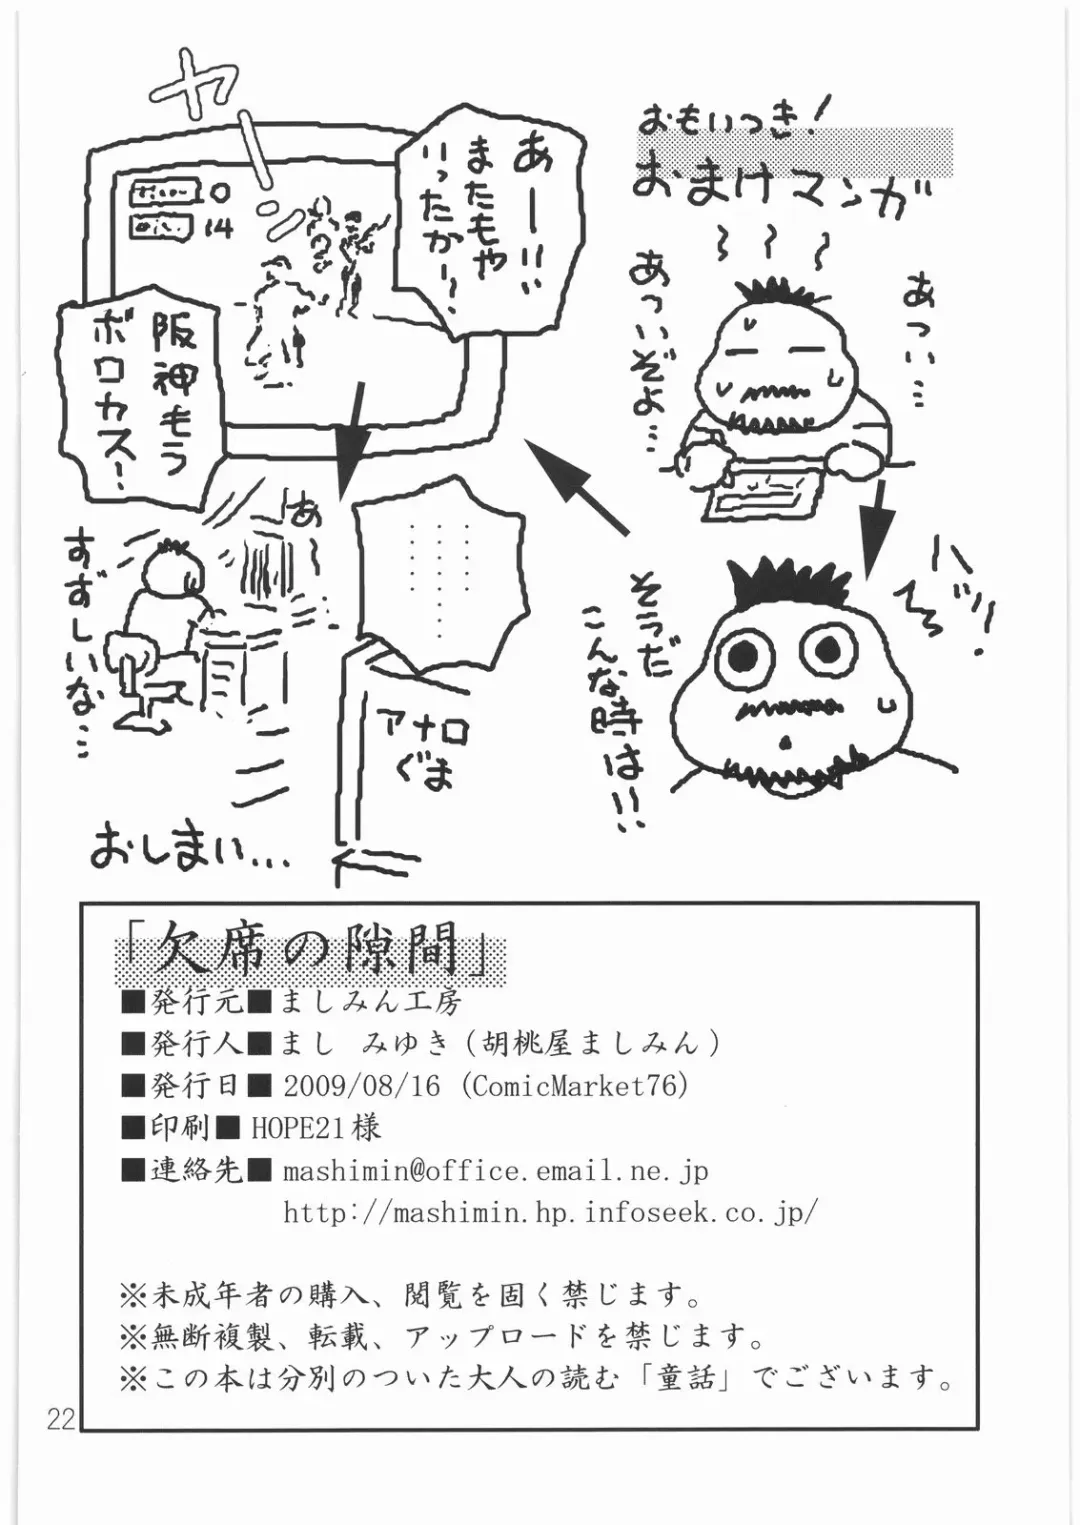 おもいつき!
おまけマンガ
あつい…
あついぞよ…
ハッ!
そうだ
こんな時は!!
ヤーン
0
14
あー!!
またもや
いったかー!
阪神もう
ボロカス!
アナロぐま
あ〜
すずしいな…
おしまい...
「欠席の隙間」
■発行元■ましみん工房
■発行人■まし みゆき(胡桃屋ましみん)
■発行日■ 2009/08/16 (ComicMarket76)
■印刷■ HOPE21様
■連絡先■ mashimin@office.email.ne.jp
http://mashimin.hp.infoseek.co.jp/
※未成年者の購入、閲覧を固く禁じます。
※無断複製、転載、アップロードを禁じます。
※この本は分別のついた大人の読む「童話」でございます。
22